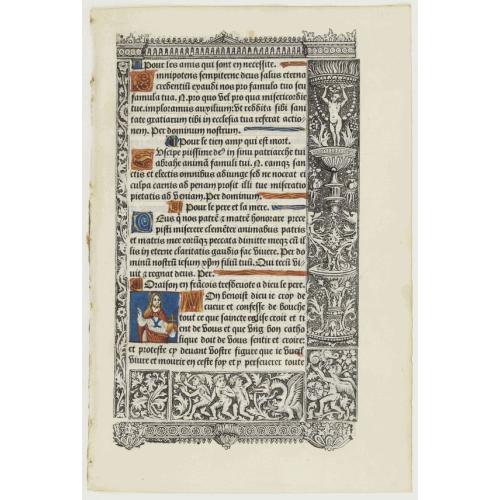 Pour les amis qui sont en necessite.
Omnipotens sempiterne deus salus eterna
credentiū exaudi nos pro famulo tuo seu
famula tua. N. pro quo vel pro qua misericordie
tue imploramus auxilium: vt reddita sibi sani
tate gratiarum tibi in ecclesia tua referat actio
nem. Per dominum nostrum.
Pour le tien amy qui est mort.
Uscipe piissime deꝰ in sinu patriarche tui
abrahe animā famuli tui. N. eamqꝫ san
ctis et electis omnibus adiunge sed ne noceat ei
culpa carnis ad penam prosit illi tue miseratio
pietatis ad veniam. Per dominum.
Pour le pere et la mere.
Deus q̄ nos patrē ⁊ matrē honorare prece
pisti miserere clemēter animabus patris
et matris mee eorūqꝫ peccata dimitte meqꝫ cū il
lis in eterne claritatis gaudio fac vivere. Per do
minū nostrū iesum xpm̄ filiū tuū. Qui tecū vi
uit ⁊ regnat deus. Per.
Oraison en frācois tresdeuote a dieu le pere.
Mon benoist dieu ie croy de
cueur et confesse de bouche
tout ce que saincte eglise croit et ti
ent de vous et que vng bon catho
lique doit de vous sentir et croire:
et proteste cy deuant vostre figure que ie vueil
viure et mourir en ceste foy et y perseuerer toute